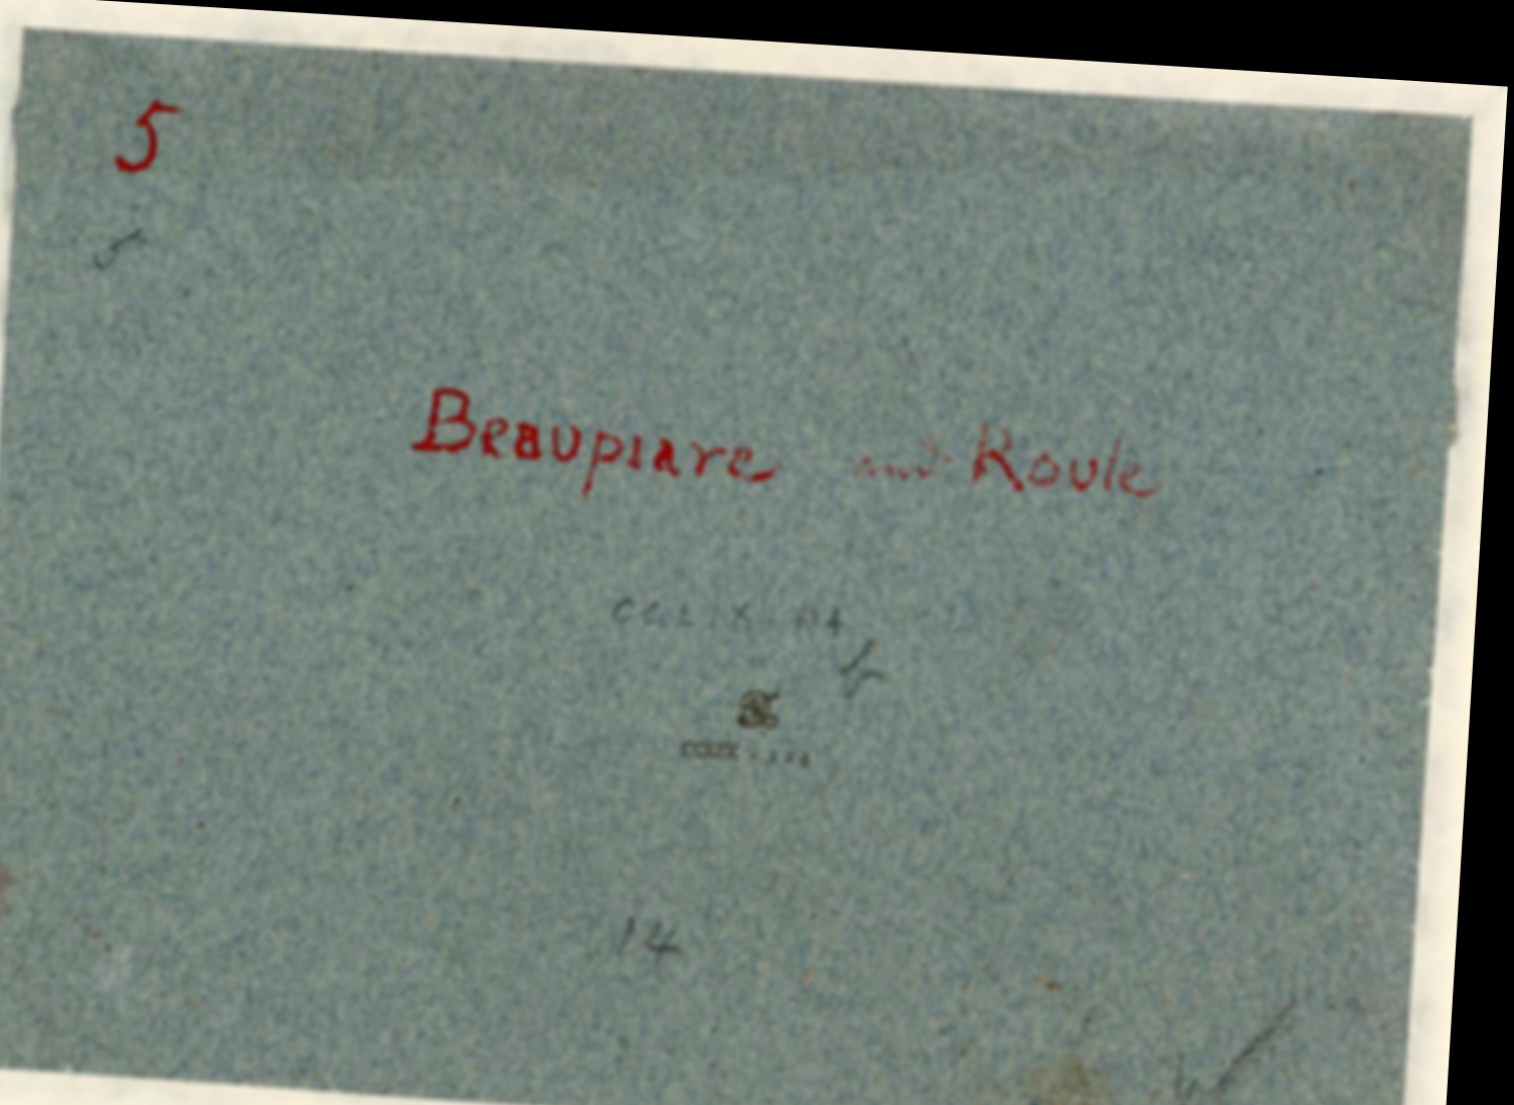 5
5
Beauprare and Roule
CCLIX 114
b
CCLIX - 114
14